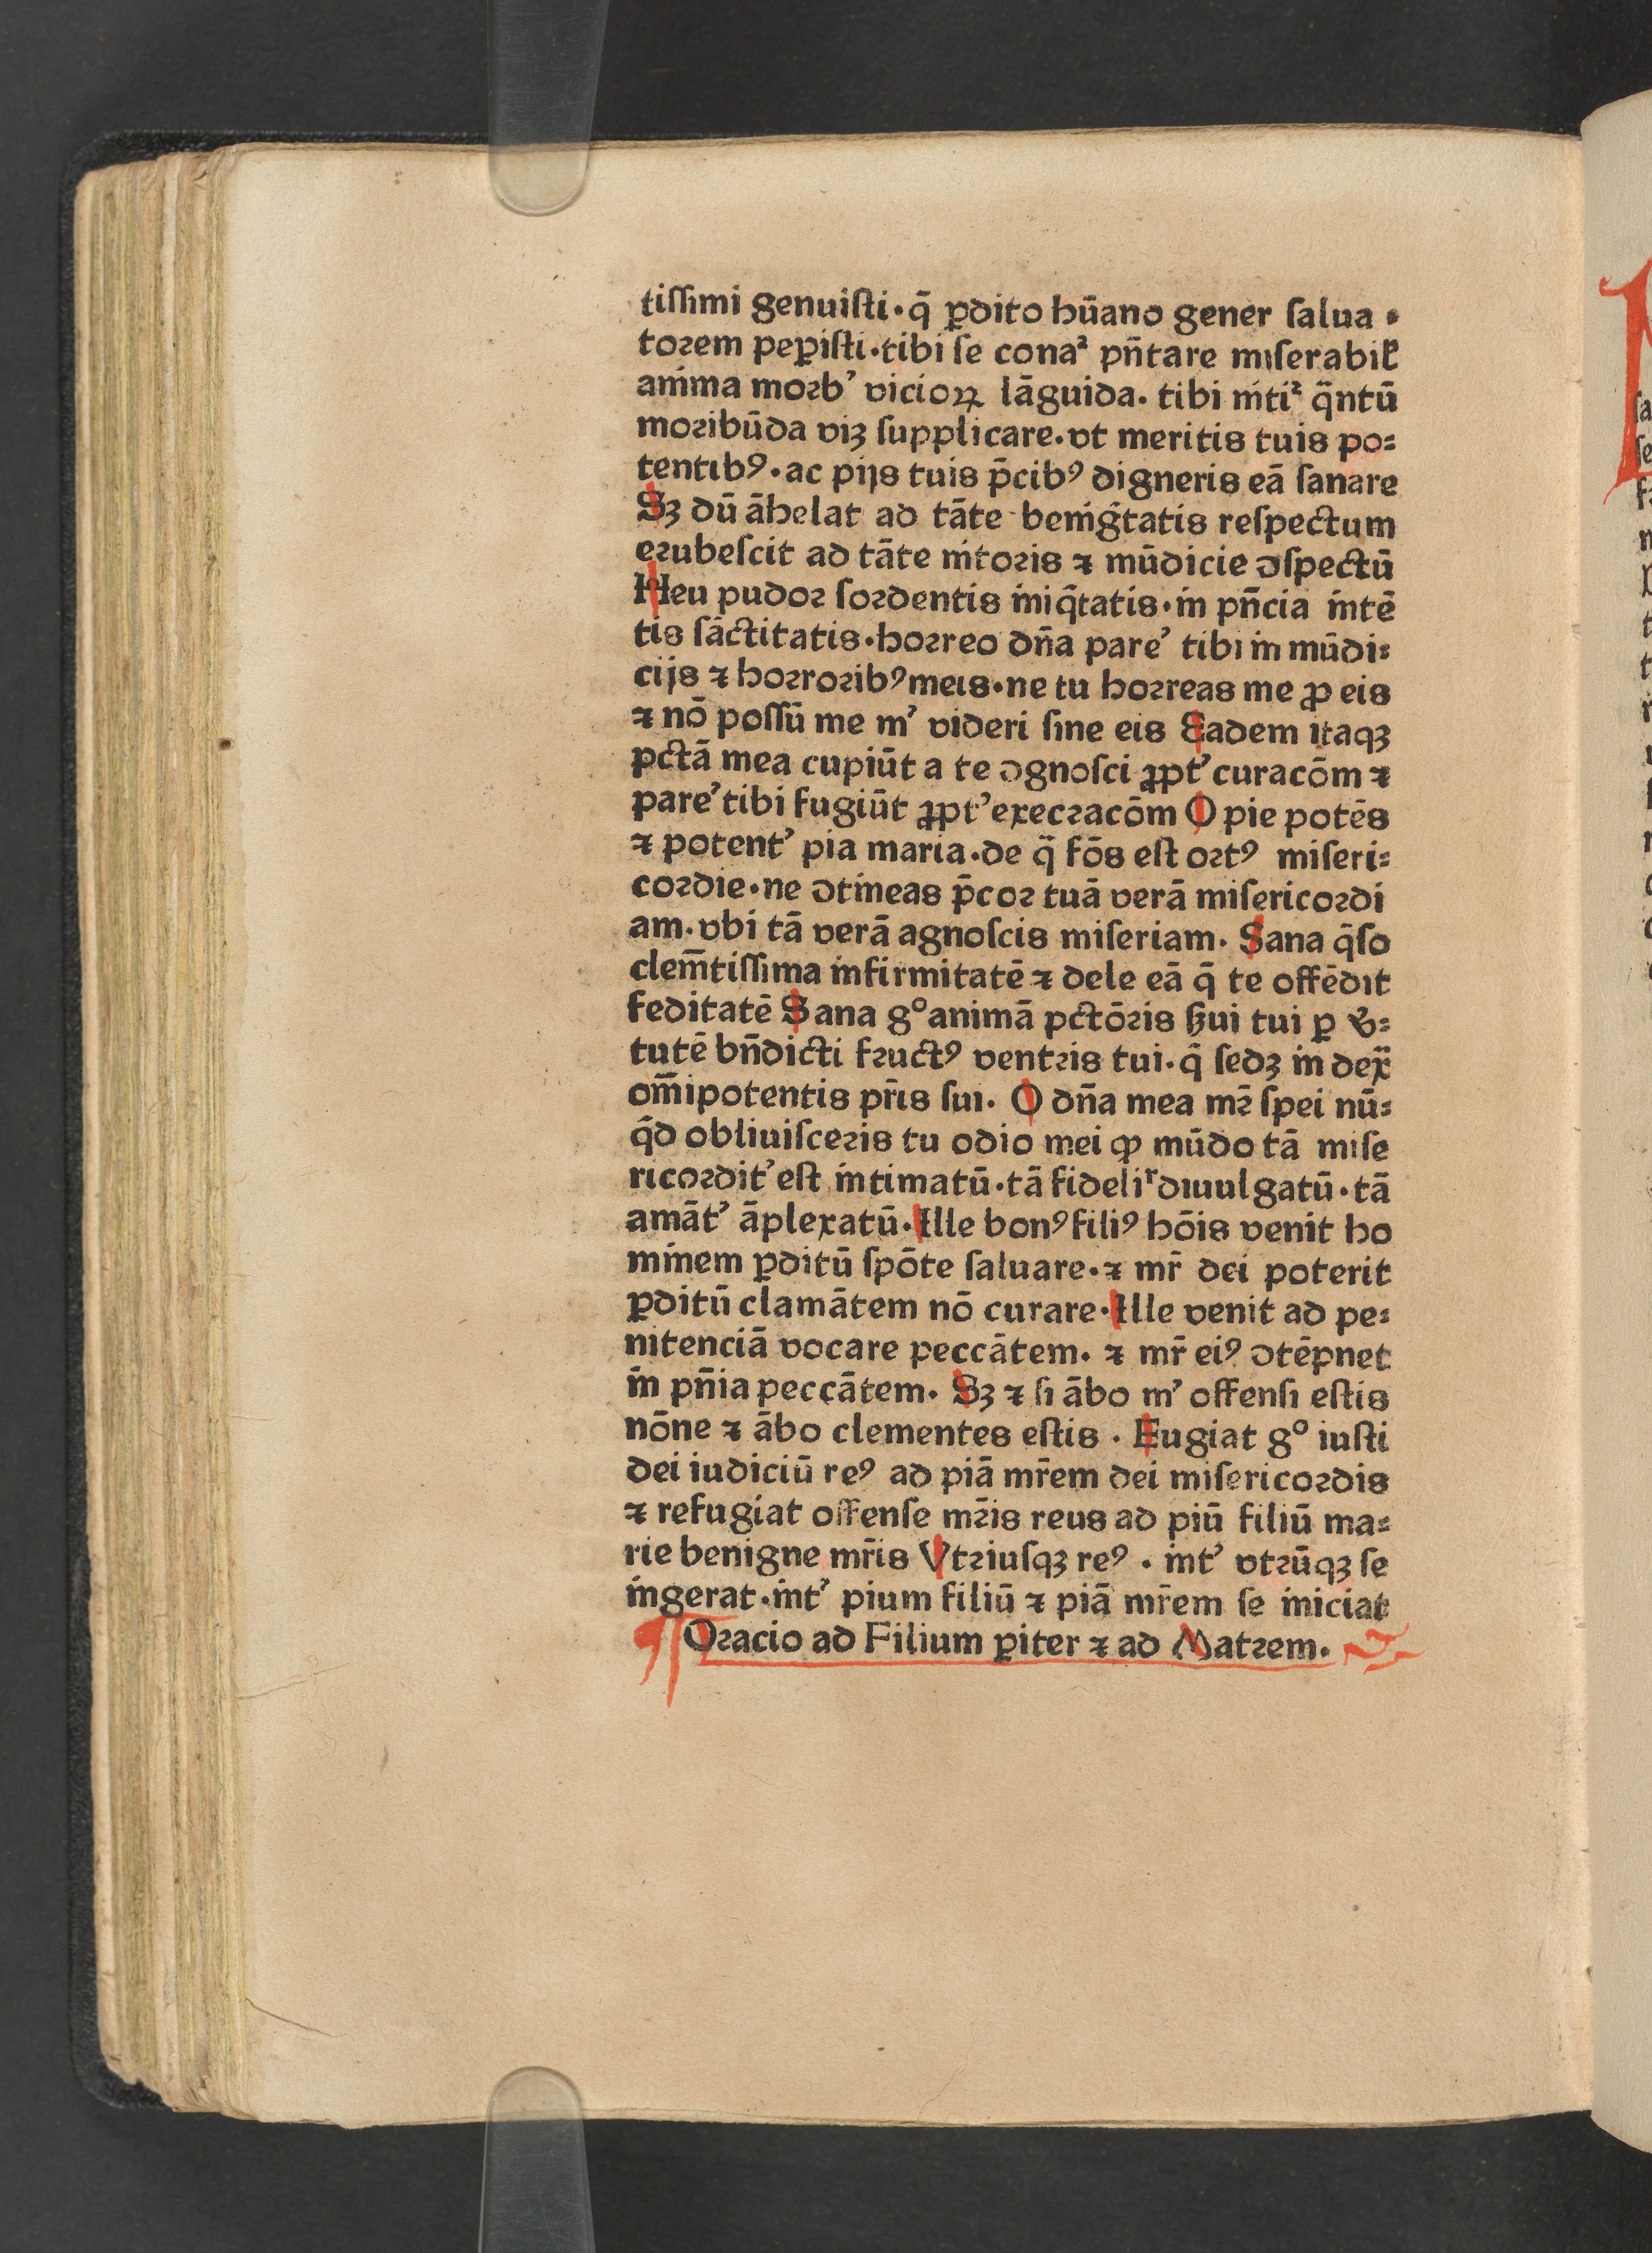 tissimi genuisti·q̄ ꝑdito hūano gener salua⸗
torem peꝑisti·tibi se conaᷣ pn̄tare miserabiƚ
anima morb’ vicioꝝ lāguida· tibi mtiᷣ q̈ntū
moribūda viꝫ supplicare·vt meritis tuis po⸗
tentibꝰ·ac pijs tuis p̄cibꝰ digneris eā sanare
Sꝫ dū āhelat ad tāte benigtatis respectum
erubescit ad tāte nitoris ⁊ mūdicie ꝯspectū
Heu pudor sordentis iniq̄tatis·in pn̄cia nitē
tis sāctitatis·horreo dn̄a pare’ tibi in mūdi⸗
cijs ⁊ horroribꝰ meis·ne tu horreas me ꝓ eis
⁊ nō possū me m’ videri sine eis Eadem itaqꝫ
pctā mea cupiūt a te ꝯgnosci ꝓpt’ curacōm ⁊
pare’ tibi fugiūt ꝓpt’ execracōm O pie potēs
⁊ potent’ pia maria·de q̈ fōs est ortꝰ miseri⸗
cordie·ne ꝯtineas p̄cor tuā verā misericordi
am·vbi tā verā agnoscis miseriam· Sana q̄so
clem̄tissima infirmitatē ⁊ dele eā q̄ te offēdit
feditatē Sana g° animā pctōris ẜui tui ꝑ v̓⸗
tutē bn̄dicti fructꝰ ventris tui·q̄ sedꝫ in dex̄
om̄ipotentis pr̄is sui· O dn̄a mea mr̄ spei nū⸗
q̄d obliuisceris tu odio mei ꝙ mūdo tā mise
ricordit’ est intimatū·tā fideliʳ diuulgatū·tā
amāt’ āplexatū·Ille bonꝰ filiꝰ hōis venit ho
minem ꝑditū spōte saluare·⁊ mr̄ dei poterit
ꝑditū clamātem nō curare·Ille venit ad pe⸗
nitenciā vocare peccātem· ⁊ mr̄ eiꝰ ꝯtēpnet
in pn̄ia peccātem· Sꝫ ⁊ si ābo m’ offensi estis
nōne ⁊ ābo clementes estis · Fugiat g° iusti
dei iudiciū reꝰ ad piā mr̄em dei misericordis
⁊ refugiat offense mr̄is reus ad piū filiū ma⸗
rie benigne mr̄is Vtriusqꝫ reꝰ · int’ vtrūqꝫ se
ingerat·int’ pium filiū ⁊ piā mr̄em se iniciat
¶ Oracio ad Filium ꝑiter ⁊ ad Matrem·